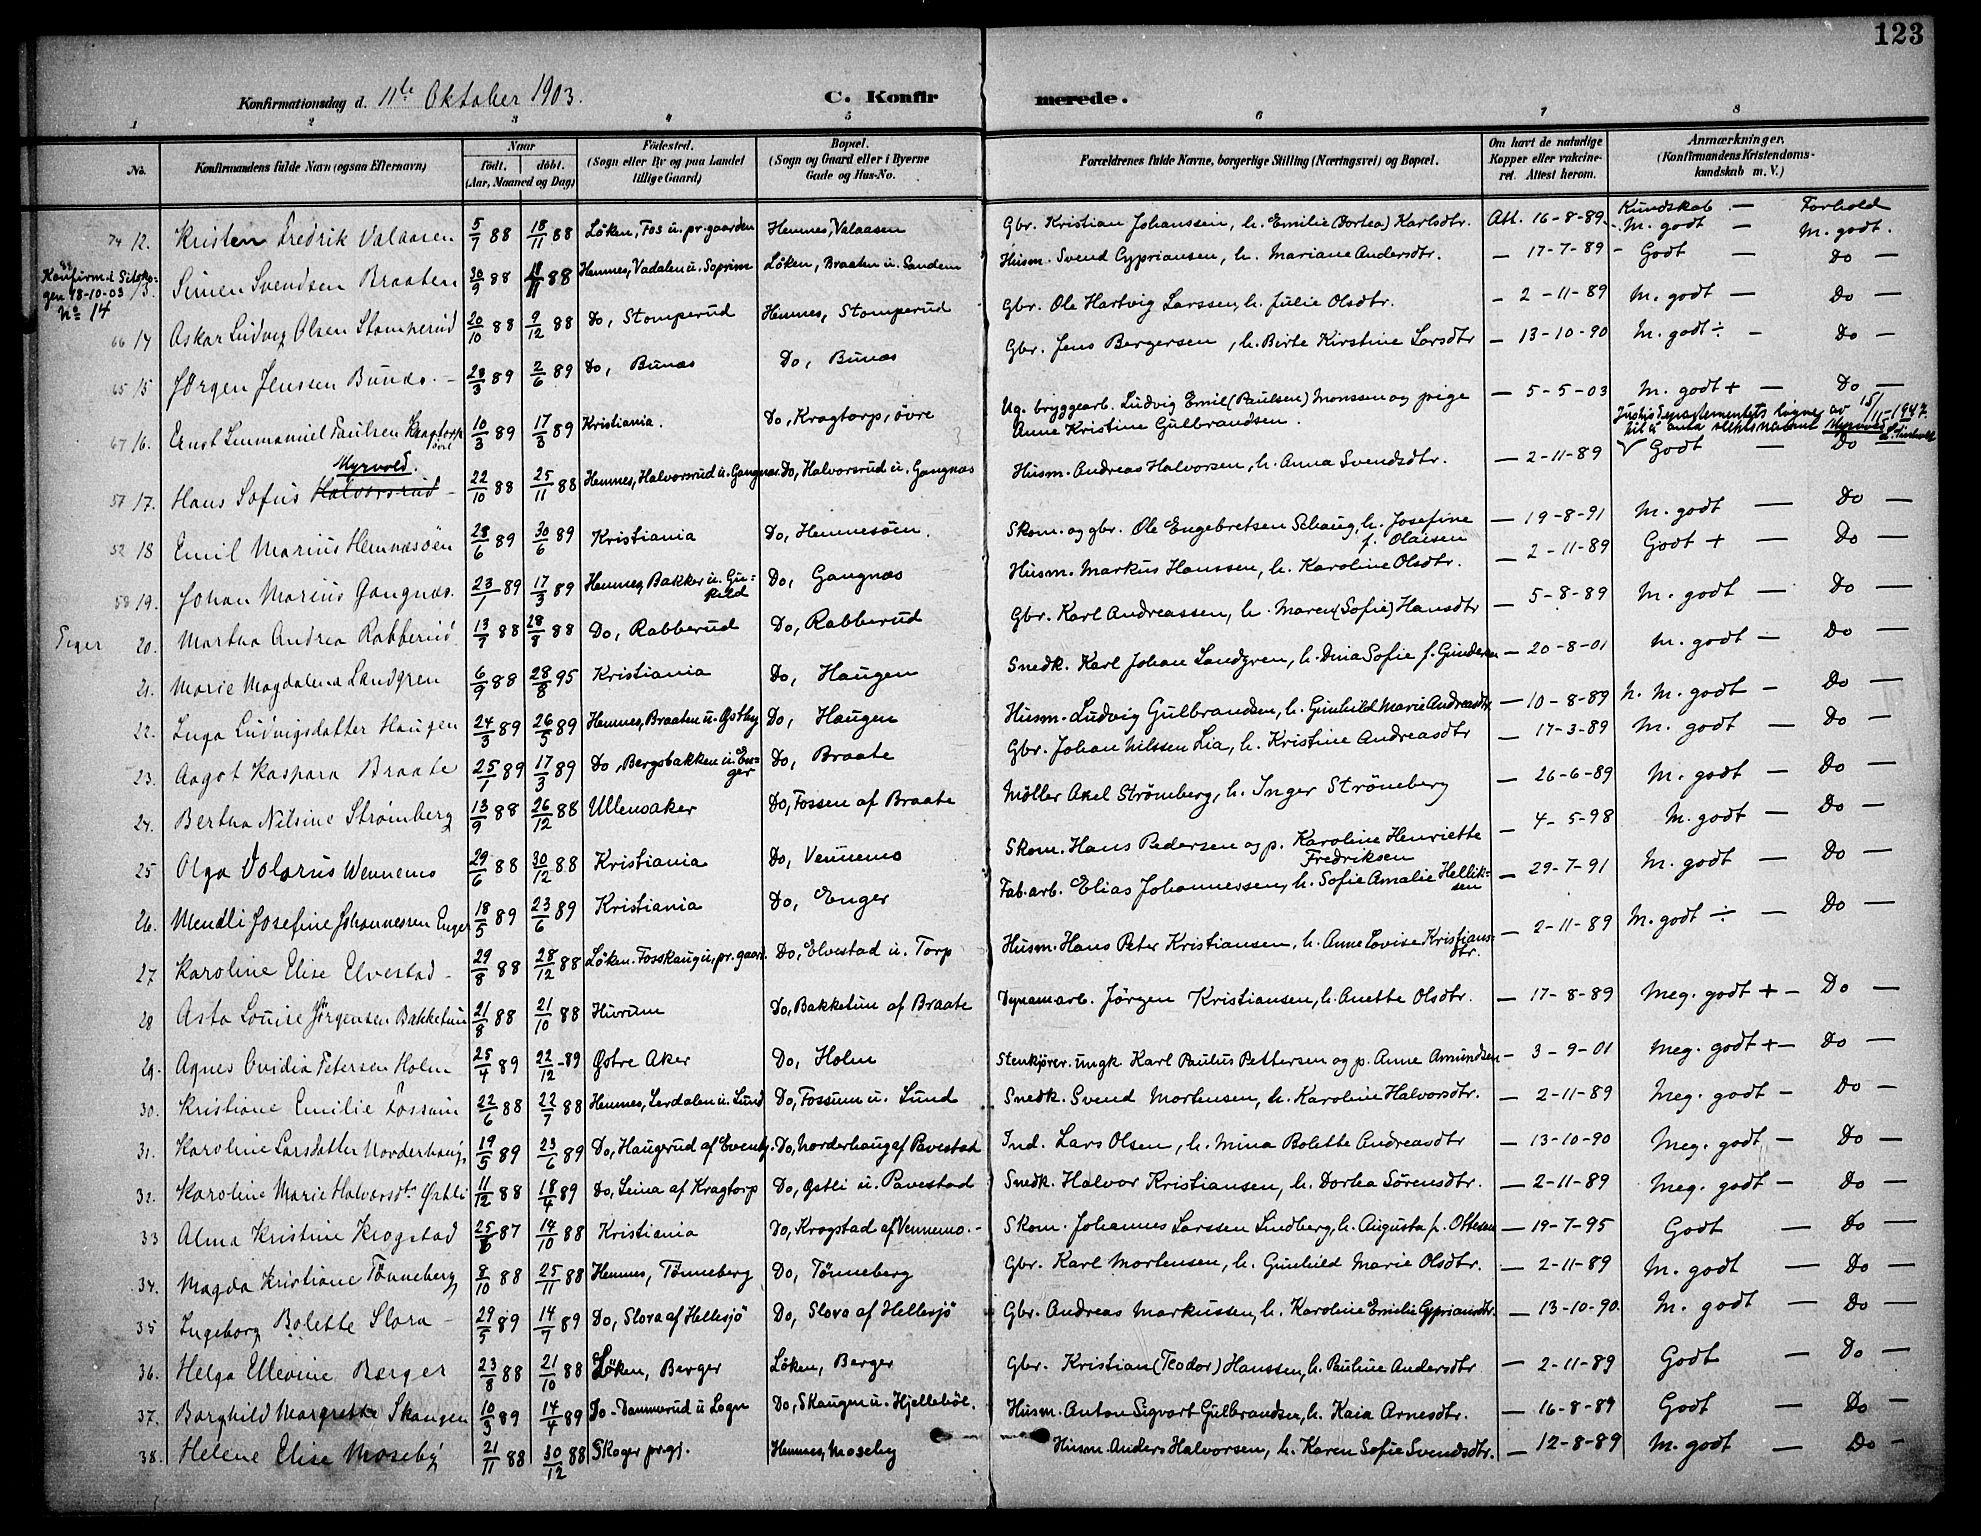 123
Konfirmationsdag d. 11te Oktober 1903. C. Konfirmerede.
1 2 3 4 5 6 7 8
No. Konfirmandens fulde Navn (ogsaa Efternavn) Naar født. døbt. (Aar, Maaned og Dag) Fødested. (Sogn eller By og paa Landet tillige Gaard) Bopæl. (Sogn og Gaard eller i Byerne Gade og Hus-No. Forældrenes fulde Navne, borgerlige Stilling (Næringsvei) og Bopæl. Om havt de naturlige Kopper eller vakcineret. Attest herom. Anmærkninger. (Konfirmandens Kristendomskundskab m. V.)
Kundskab — Forhold
74 12. Kristen Fredrik Valaasen 5/7 88 18/11 88 Löken, Fos u. pr.gaarden Hemnes, Valaasen Gbr. Kristian Johanssen, h. Emilie (Dortea) Karlsdtr. Att. 16-8-89. M. godt — M. godt.
Konfirm. i Setskogen 18-10-03 No 14
13. Simen Svendsen Braaten 30/9 88 18/11 88 Hemnes, Vadalen u. Soprim Löken, Braaten u. Sandem Husm. Svend Cypriansen, h. Mariane Andersdtr. — 17-7-89 - Godt — Do —
66 14 Askar Ludvig Olsen Stomperud 20/10 88 9/12 88 Do, Stomperud Hemnes, Stomperud Gbr. Ole Hartvig Larssen, h. Julie Olsdtr. — 2-11-89 M. godt — Do —
65 15 Jørgen Jenssen Bunæs. — 28/3 89 2/6 89 Do, Bunæs Do, Bunæs Gbr. Jens Bergersen, h. Birte Kirstine Larsdtr — 13-10-90 M. godt ÷ — Do —
67 16. Ernst Emmanuel Paulsen Kragtorp övre 10/3 89 17/3 89 Kristiania. Do, Kragtorp, övre Ug. bryggearb. Ludvig Emil (Paulsen) Monssen og pige Anne Kristine Gulbrandsen. — 5-5-03 M. godt + — Do —
Justisdepartementets av 15/11-1947 til å anta slektsnavnet Myrvold
57 17. Hans Sofus Halvorsrud Myrvold. 22/10 88 25/11 88 Hemnes, Halvorsrud u. Gangnæs. Do, Halvorsrud u. Gangnæs Husm. Andreas Halvorsen, h. Anna Svendsdtr. — 2-11-89 Godt — Do
52 18 Emil Marius Hemnæsøen 28/6 89 30/6 89 Kristiania Do, Hemnesöen. Skom. og gbr. Ole Engebretsen Schaug, h. Josefine f. Olaisen — 19-8-91 M. godt — Do —
58 19. Johan Marius Gangnæs. 23/1 89 17/3 89 Hemnes, Bakker u. Gukild Do, Gangnæs Husm. Markus Hanssen, h. Karoline Olsdtr. — 2-11-89 Godt + — Do —
20. Martha Andrea Rabberud 13/7 88 28/8 88 Do, Rabberud Do, Rabberud Gbr. Karl Andreassen, h. Maren (Sofie) Hansdtr — 5-8-89 M. godt — Do —
21. Marie Magdalena Landgren 6/9 88 28/8 95 Kristiania Do, Haugen Snedk. Karl Johan Landgren, h. Dina Sofie f. Gundersen — 20-8-01 M. godt — Do —
22. Inga Ludvigsdatter Haugen 24/3 89 26/5 89 Hemnes, Braaten u. Østby Do, Haugen Husm. Ludvig Gulbrandsen, h. Gunhild Marie Andreasdtr. — 10-8-89 n. M. godt — Do —
23. Aagot Kaspara Braate 25/1 89 17/3 89 Do, Bergsbakken u. Enger Do, Braate Gbr. Johan Nilssen Lia, h. Kristine Andreasdtr — 17-3-89 M. godt — Do —
24. Bertha Nilsine Strømberg 13/9 88 26/12 88 Ullensaker Do, Fossen af Braate Möller Axel Strömberg, h. Inger Strömeberg — 26-6-89 M. godt — Do —
25 Olga Volarius Wennemo 29/6 88 30/12 88 Kristiania Do, Vennemo Skom. Hans Pedersen og p. Karoline Henriette Fredriksen — 4-5-98 M. godt — Do —
26. Mendli Josefine Johannessen Enger 18/5 89 23/6 89 Kristiania Do, Enger Fab.arb. Elias Johannessen, h. Sofie Amalie Helliksen — 29-7-91 M. godt — Do —
27 Karoline Elise Elvestad — 29/8 88 28/12 88 Löken. Fosskaug u. pr. gaard. Do, Elvestad u. Torp Husm. Hans Peter Kristiansen, h. Anne Lovise Kristiansdtr. — 2-11-89 M. godt ÷ — Do —
28 Asta Louise Jørgensen Bakketun 21/8 88 21/10 88 Hurum Do, Bakketun af Braate Dynamarb. Jörgen Kristiansen, h. Anette Olsdtr. — 17-8-89 Meg. godt + — Do —
29. Agnes Ovidia Petersen Holm 25/4 89 22/12-89 Østre Aker Do, Holm Stenkjører. ungk. Karl Paulus Pettersen og p. Anne Amundsen — 3-9-01 Meg. godt + — Do —
30. Kristiane Emilie Fossum 22/6 88 22/7 88 Hemnes, Lerdalen u. Lund Do, Fossum u. Lund Snedk. Svend Mortensen, h. Karoline Halvorsdtr. — 2-11-89 Meg. godt — Do —
31. Karoline Larsdatter Norderhaug 19/5 89 23/6 89 Do, Haugrud af Evenby. Do, Norderhaug af Pavestad Ind. Lars Olsen, h. Mina Bolette Andreasdtr — 13-10-90 Meg. godt — Do —
32. Karoline Marie Halvorsdtr Østli 11/12 88 18/4 89 Do, Leina af Kragtorp Do, Østli u. Pavestad Snedk. Halvor Kristiansen, h. Dortea Sörensdtr. — 2-11-89 Meg. godt — Do —
33 Alma Kristine Krogstad 25/6 87 14/10 88 Kristiania Do, Krogstad af Vennemo. — Skom. Johannes Larssen Lindberg, h. Augusta f. Ottesen — 19-7-95 Godt — Do —
34. Magda Kristiane Tønneberg 8/10 88 25/11 88 Hemnes, Tönneberg Do, Tönneberg Gbr. Karl Mortensen, h. Gunhild Marie Olsdtr. — 2-11-89 M. godt — Do —
35 Ingeborg Bolette Slora — 29/5 89 14/7 89 Do, Slora af Hellesjö Do, Slora af Hellesjö Gbr. Andreas Markussen, h. Karoline Emilie Cypriansdtr. — 13-10-90. M. godt — Do —
36. Helga Ellevine Berger 23/8 88 21/10 88 Löken, Berger Löken, Berger Gbr. Kristian (Teodor) Hanssen, h. Pauline Andersdtr — 2-11-89 Godt — Do —
37. Borghild Margrethe Skaugen 10/3 89 14/4 89 Do - Dammerud u Logn Do, Skaugen u. Hjelleböl. Husm. Anton Sigvart Gulbrandsen, h. Kaia Arnesdtr. — 16-8-89 Godt — Do —
38. Helene Elise Moseby 21/11 88 30/12 88 Skoger prgj. Hemnes, Moseby Husm. Anders Halvorsen, h. Karen Sofie Svendsdtr. — 12-8-89 M. godt — Do —